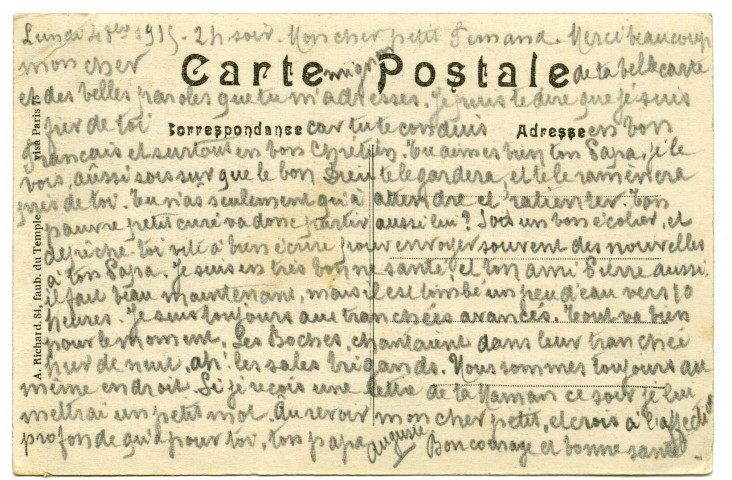 Lundi 4 8bre 1915. 2h soir. Mon cher petit Fernand. Merci beaucoup
mon cher mignon de ta belle carte
Carte Postale
et des belles paroles que tu m'adresses. Je puis te dire que je suis
fier de toi car tu te conduis en bon
Correspondance Adresse
Français et surtout en bon Chrétien. Tu aimes bien ton Papa, je le
vois, aussi sois sur que le bon Dieu te le gardera, et te le ramènera
près de toi. Tu n'as seulement qu'à attendre et patienter. Ton
pauvre petit curé va donc partir aussi lui? Sois un bon écolier, et
dépêche-toi vite à bien écrire pour envoyer souvent des nouvelles
à ton Papa. Je suis en très bonne santé, et ton ami Pierre aussi.
il fait beau maintenant, mais il est tombé un peu d'eau vers 10
heures. Je suis toujours aux tranchées avancés. Tout va bien
pour le moment. Les Boches, chantaient dans leur tranchée
hier de nuit, ah! les sales brigands. Nous sommes toujours au
même endroit. Si je reçois une lettre de ta Maman ce soir je lui
mettrai un petit mot. Au revoir mon cher petit, et crois à l'affection
profonde qu'a pour toi, ton papa Auguste Bon courage et bonne santé
visa Paris 75
A. Richard, 84, faub. du Temple